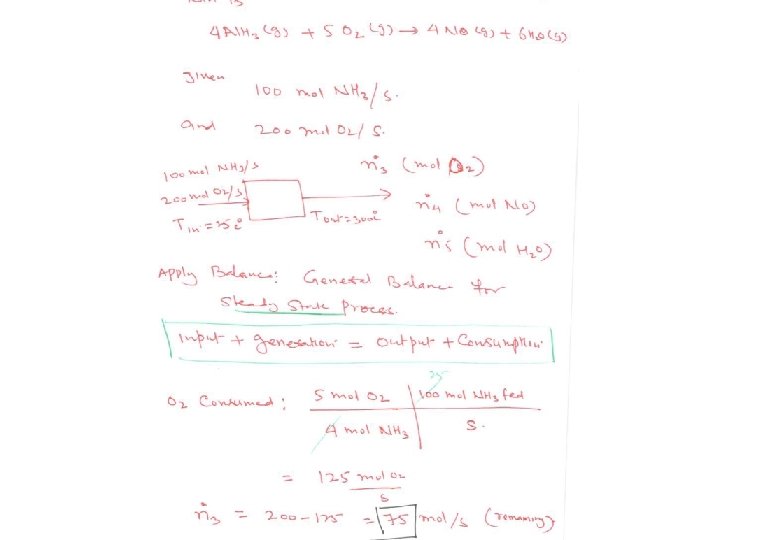 4NH3(g) + 5O2(g) → 4NO(g) + 6H2O(g)
Given
100 mol NH3/s.
and 200 mol O2/s.
ṅ3 (mol O2)
100 mol NH3/s
200 mol O2/s
ṅ4 (mol NO)
Tin = 25°C
Tout = 300°C
ṅ5 (mol H2O)
Apply Balance: General Balance for
Steady State Process.
Input + generation = Output + Consumption
25
O2 Consumed: 5 mol O2 | 100 mol NH3 fed
4 mol NH3 | s.
= 125 mol O2
s
ṅ3 = 200-125 = 75 mol/s (remaining)